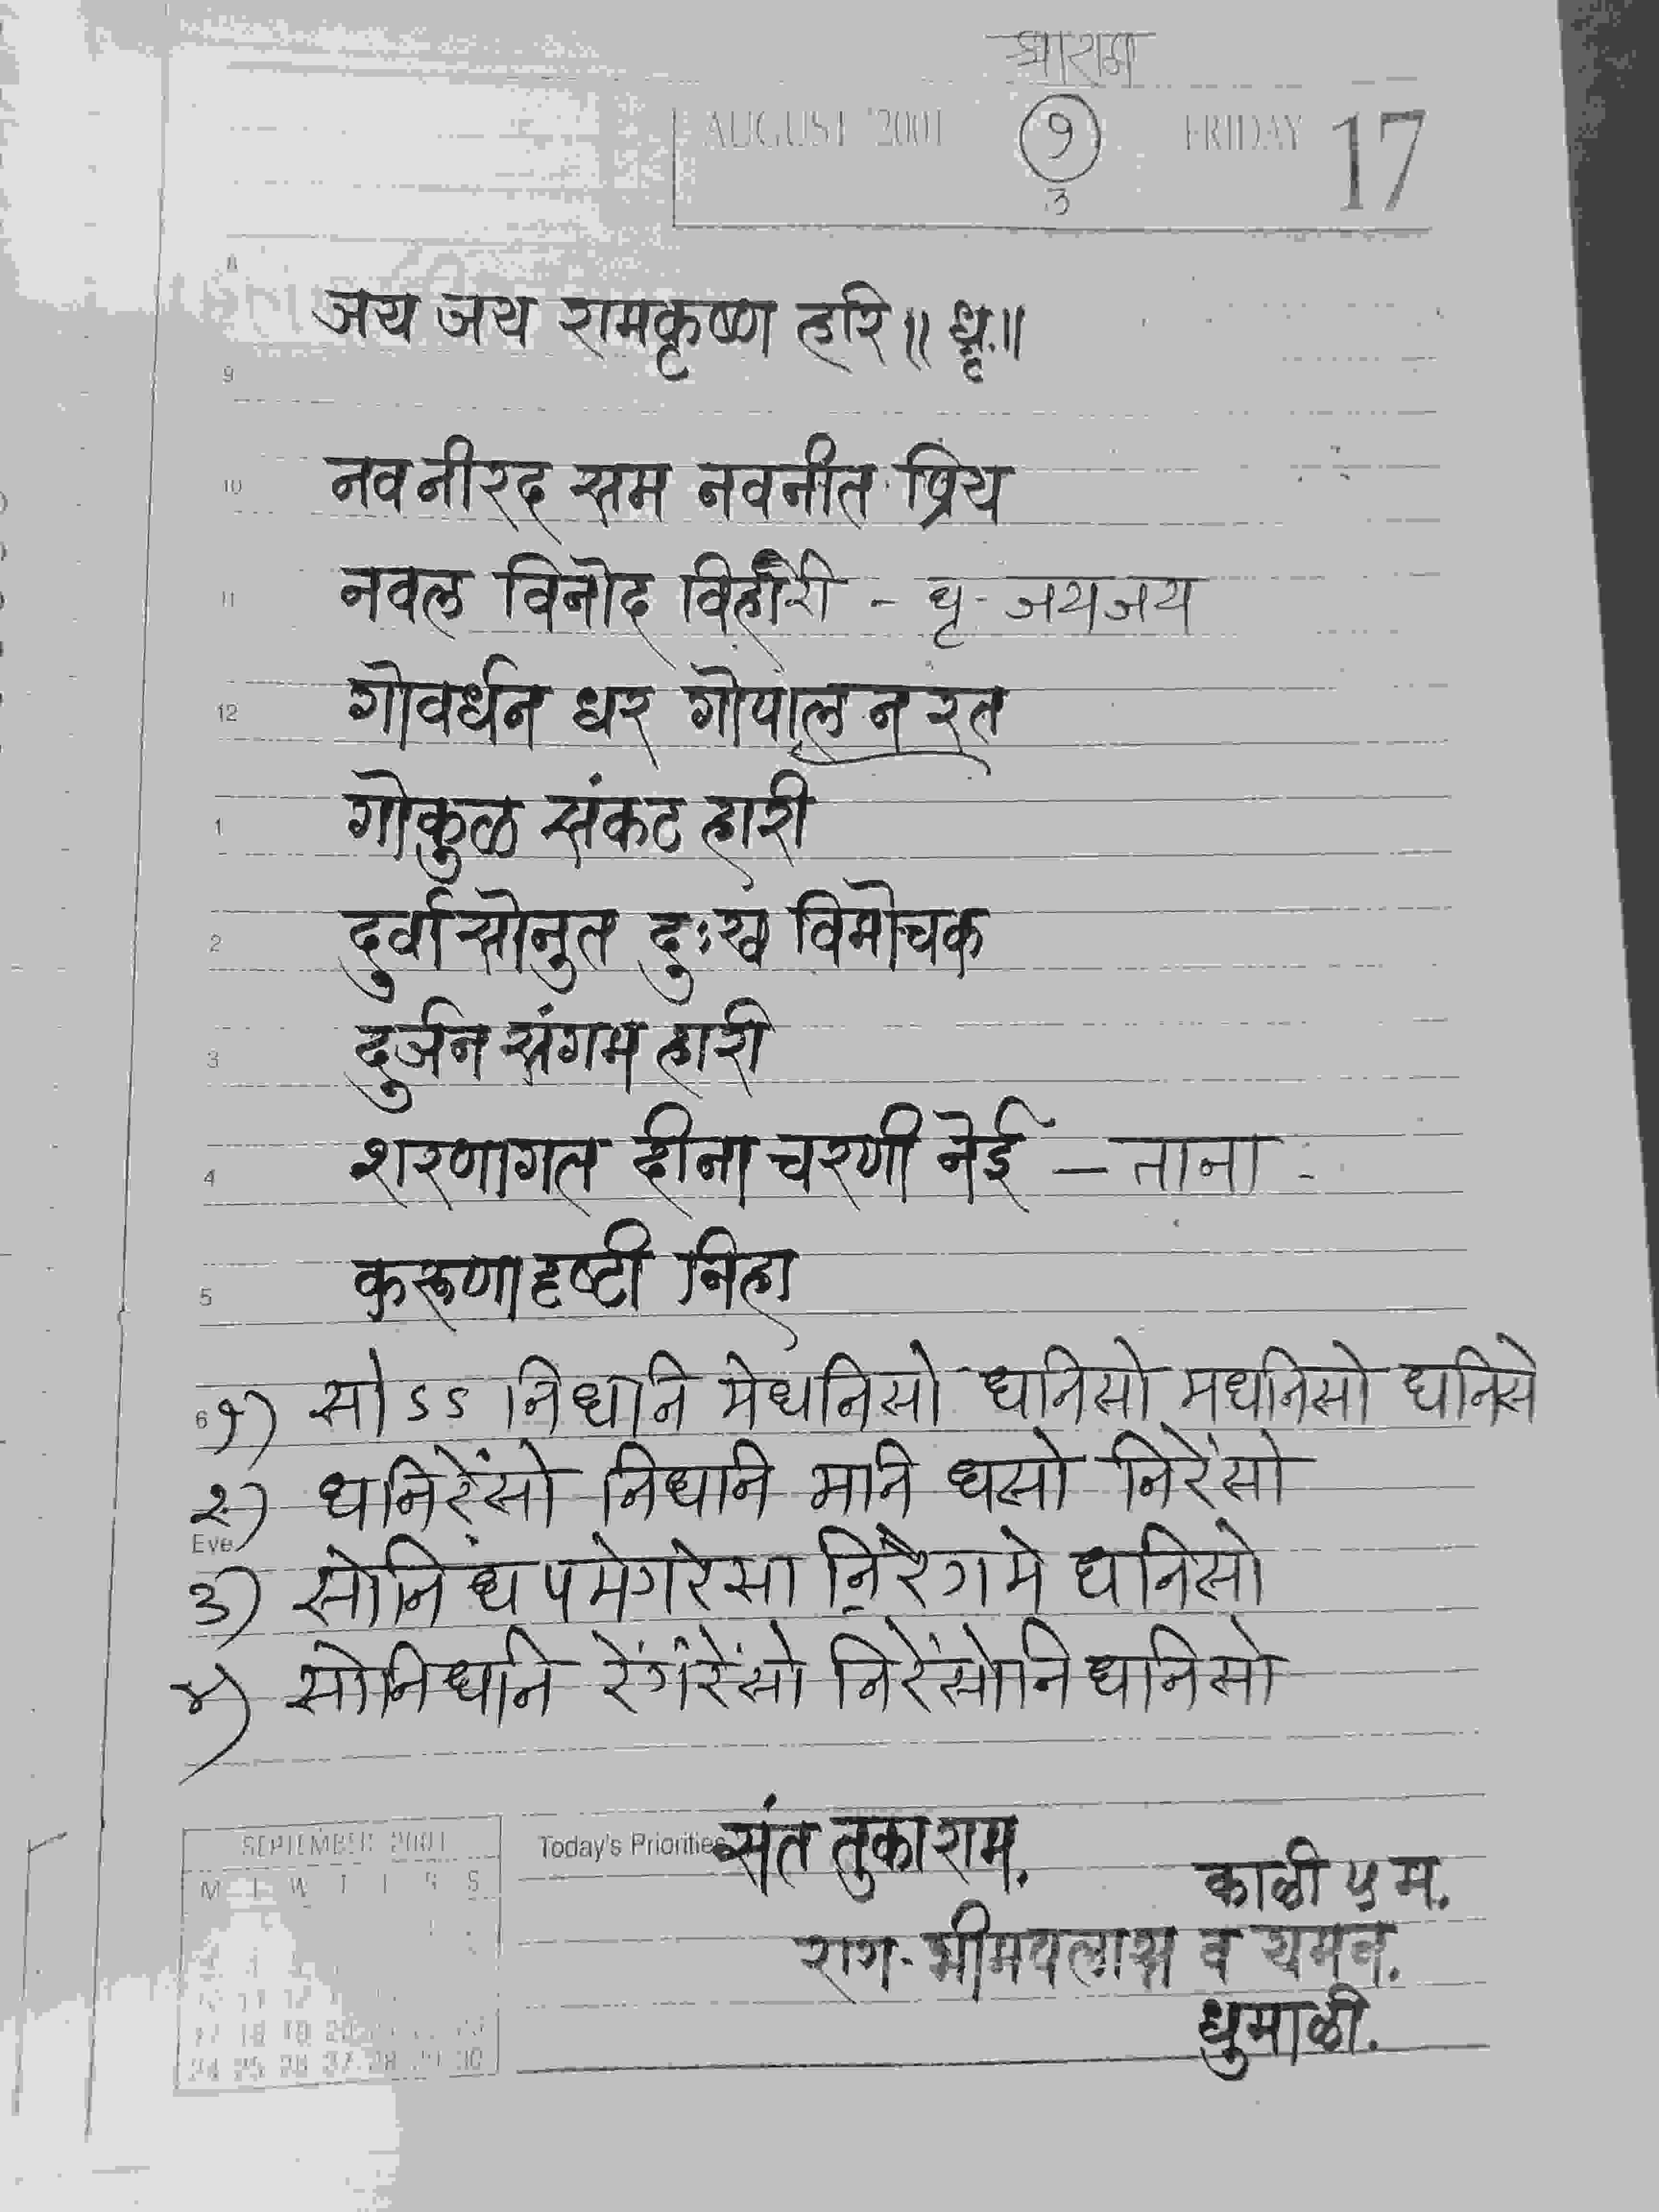 श्रीराम
AUGUST 2001 ९ FRIDAY 17
३
8
जय जय रामकृष्ण हरि ॥ धृ.॥
9
10 नवनीरद सम नवनीत प्रिय
11 नवल विनोद विहारी - धृ - जयजय
12 गोवर्धन धर गोपालन रत
1 गोकुळ संकट हारी
2 दुर्वासोनुत दुःख विमोचक
3 दुर्जन संगम हारी
4 शरणागत दीना चरणी नेई - ताना :
5 करूणा दृष्टी निहा
6 १) सो ऽऽ निधनि मेधनिसो धनिसो मधनिसो धनिसो
२) धनिरेंसो निधनि मनि धसो निरेंसो
Eve
३) सोनि ध प मे ग रे सा नि़रे ग मे धनिसो
४) सोनिधनि रेंगंरेंसो निरेंसोनिधनिसो
SEPTEMBER 2001 Today's Priorities संत तुकाराम.
M T W T F S S काळी ५ म.
राग- भीमपलास व यमन.
धुमाळी.
17 18 19 20
24 25 26 27 28 29 30